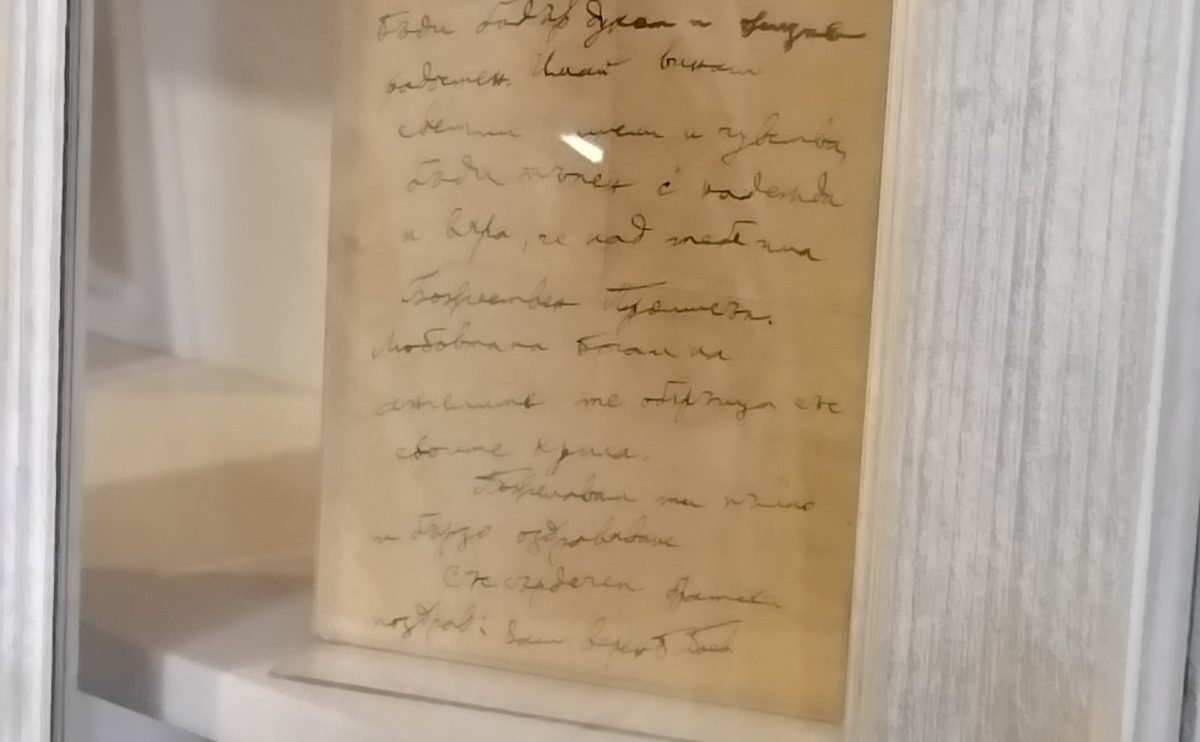 бѫди бодър духом и
радостен. Имай винаги
светли мисли и чувства,
бѫди пълен с надежда
и вяра, че над тебе има
Божествен Промисъл.
Любовта на Бога и на
ангелите те обгръща със
своите крила.
Пожелавам ти пълно
и бързо оздравяване
Със сърдечен братски
поздрав: Ваш верен Б. Боев